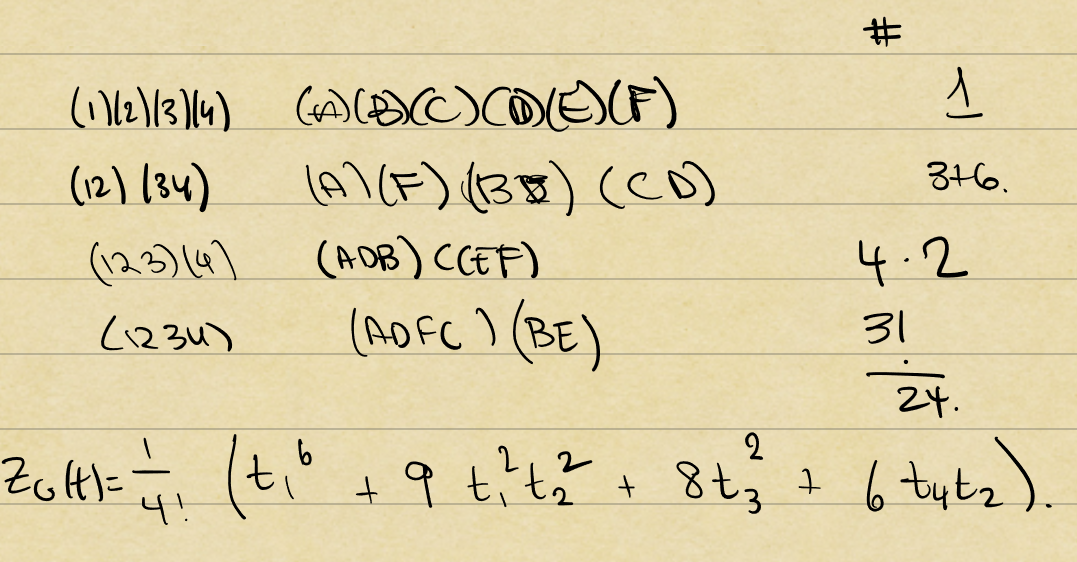 #
(1)(2)(3)(4) (A)(B)(C)(D)(E)(F) 1
(12)(34) (A)(F)(BE)(CD) 3+6.
(123)(4) (ADB)(CEF) 4·2
(1234) (ADFC)(BE) 3!
24.
Z_G(t)= 1/4! (t_1^6 + 9 t_1^2 t_2^2 + 8t_3^2 + 6 t_4 t_2).